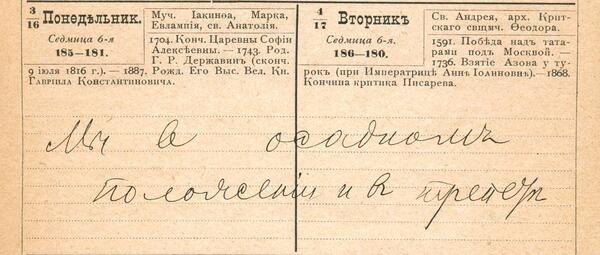 3/16 Понедѣльникъ.
Седмица 6-я
185—181.
Муч. Іакинѳа, Марка,
Евлампія, св. Анатолія.
1704. Конч. Царевны Софіи
Алексѣевны. — 1743. Род.
Г. Р. Державинъ (сконч.
9 іюля 1816 г.). — 1887. Рожд. Его Выс. Вел. Кн.
Гавріила Константиновича.
4/17 Вторникъ
Седмица 6-я.
186—180.
Св. Андрея, арх. Крит-
скаго свщмч. Ѳеодора.
1591. Побѣда надъ тата-
рами подъ Москвой. —
1736. Взятіе Азова у ту-
рокъ (при Императрицѣ Аннѣ Іоанновнѣ).—1868.
Кончина критика Писарева.
Мы в осадномъ
положеніи и в